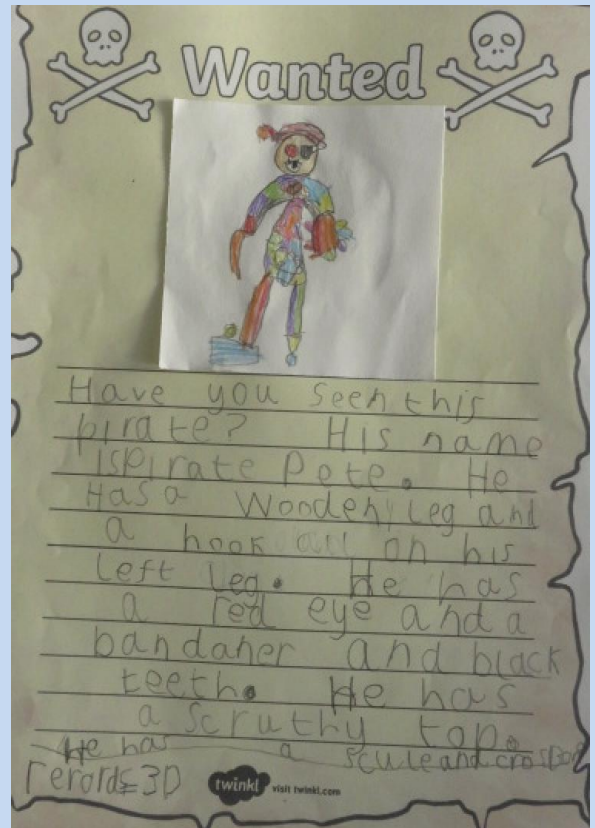 Wanted
Have you seen this
pirate? His name
is Pirate Pete. He
Has a Wooden leg and
a hook on his
left leg. He has
a red eye and a
bandaner and black
teeth. He has
a scruthy top.
He has a scule and
twinkl visit twinkl.com